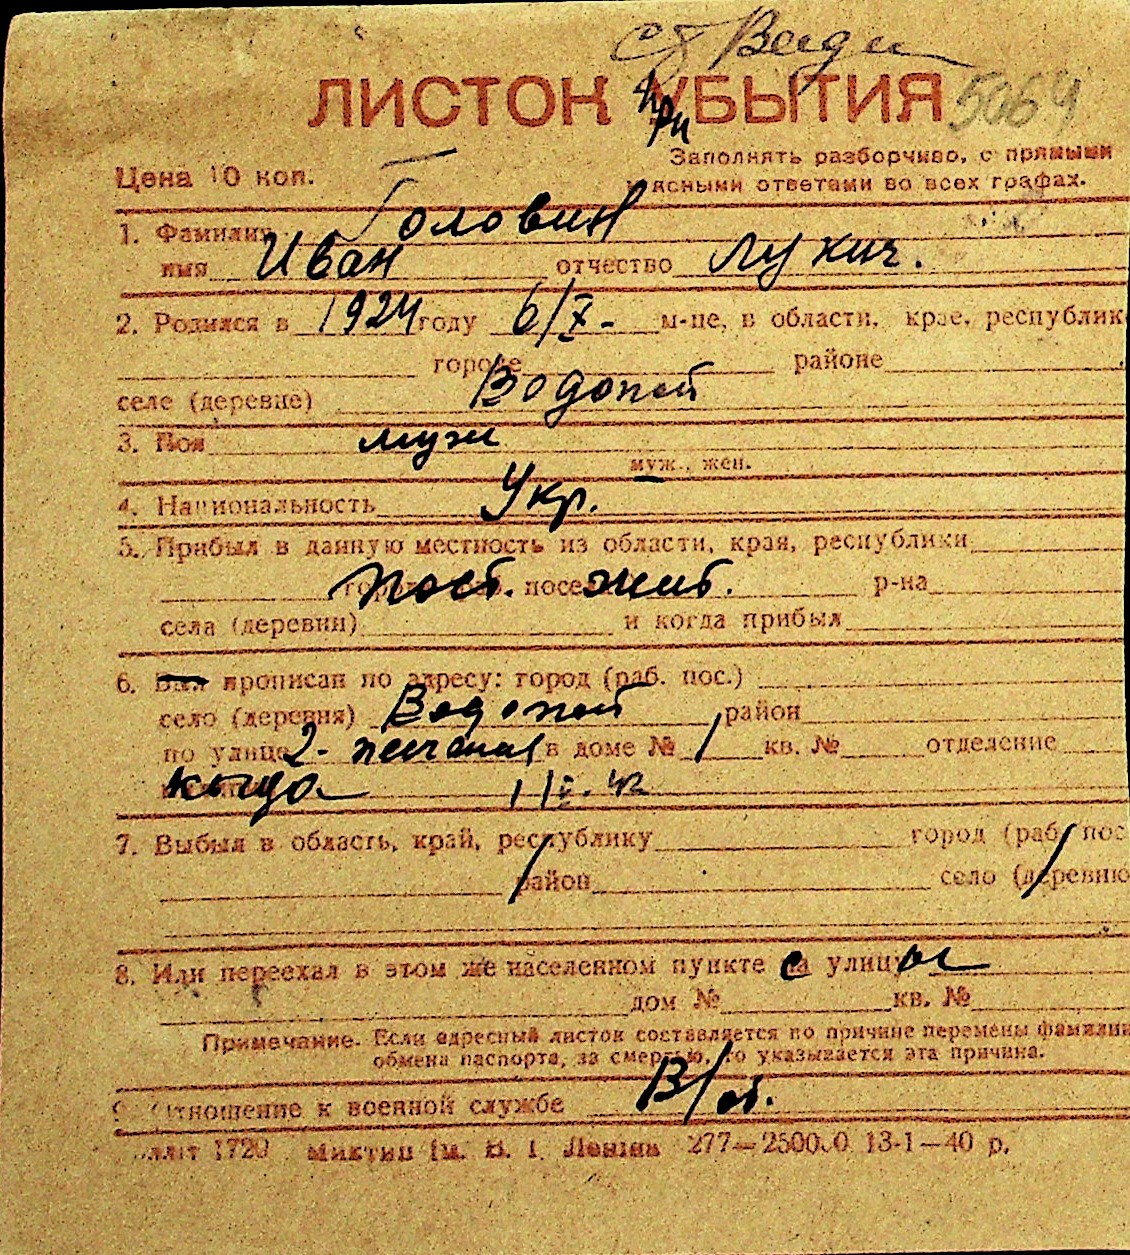 ЛИСТОК УБЫТИЯ 5064
Цена 10 коп.
Заполнять разборчиво, с прямыми
и ясными ответами во всех графах.
1. Фамилия Головин
имя Иван отчество Лукич.
2. Родился в 1924 году 6/X- м-це, в области, крае, республик
городе районе
селе (деревне) Водопой
3. Пол муж
муж., жен.
4. Национальность Укр.
5. Прибыл в данную местность из области, края, республики
Пост. жит. р-на
села (деревни) и когда прибыл
6. Был прописан по адресу: город (раб. пос.)
село (деревня) Водопой район
по улице 2- песчаная в доме № 1 кв. № отделение
42
7. Выбыл в область, край, республику город (раб пос
район село (деревню
8. Или переехал в этом же населенном пункте на улицу
дом № кв. №
Примечание. Если адресный листок составляется по причине перемены фамилии
обмена паспорта, за смертью, то указывается эта причина.
9. Отношение к военной службе В/об.
1720 277—250000 13-1—40 р.